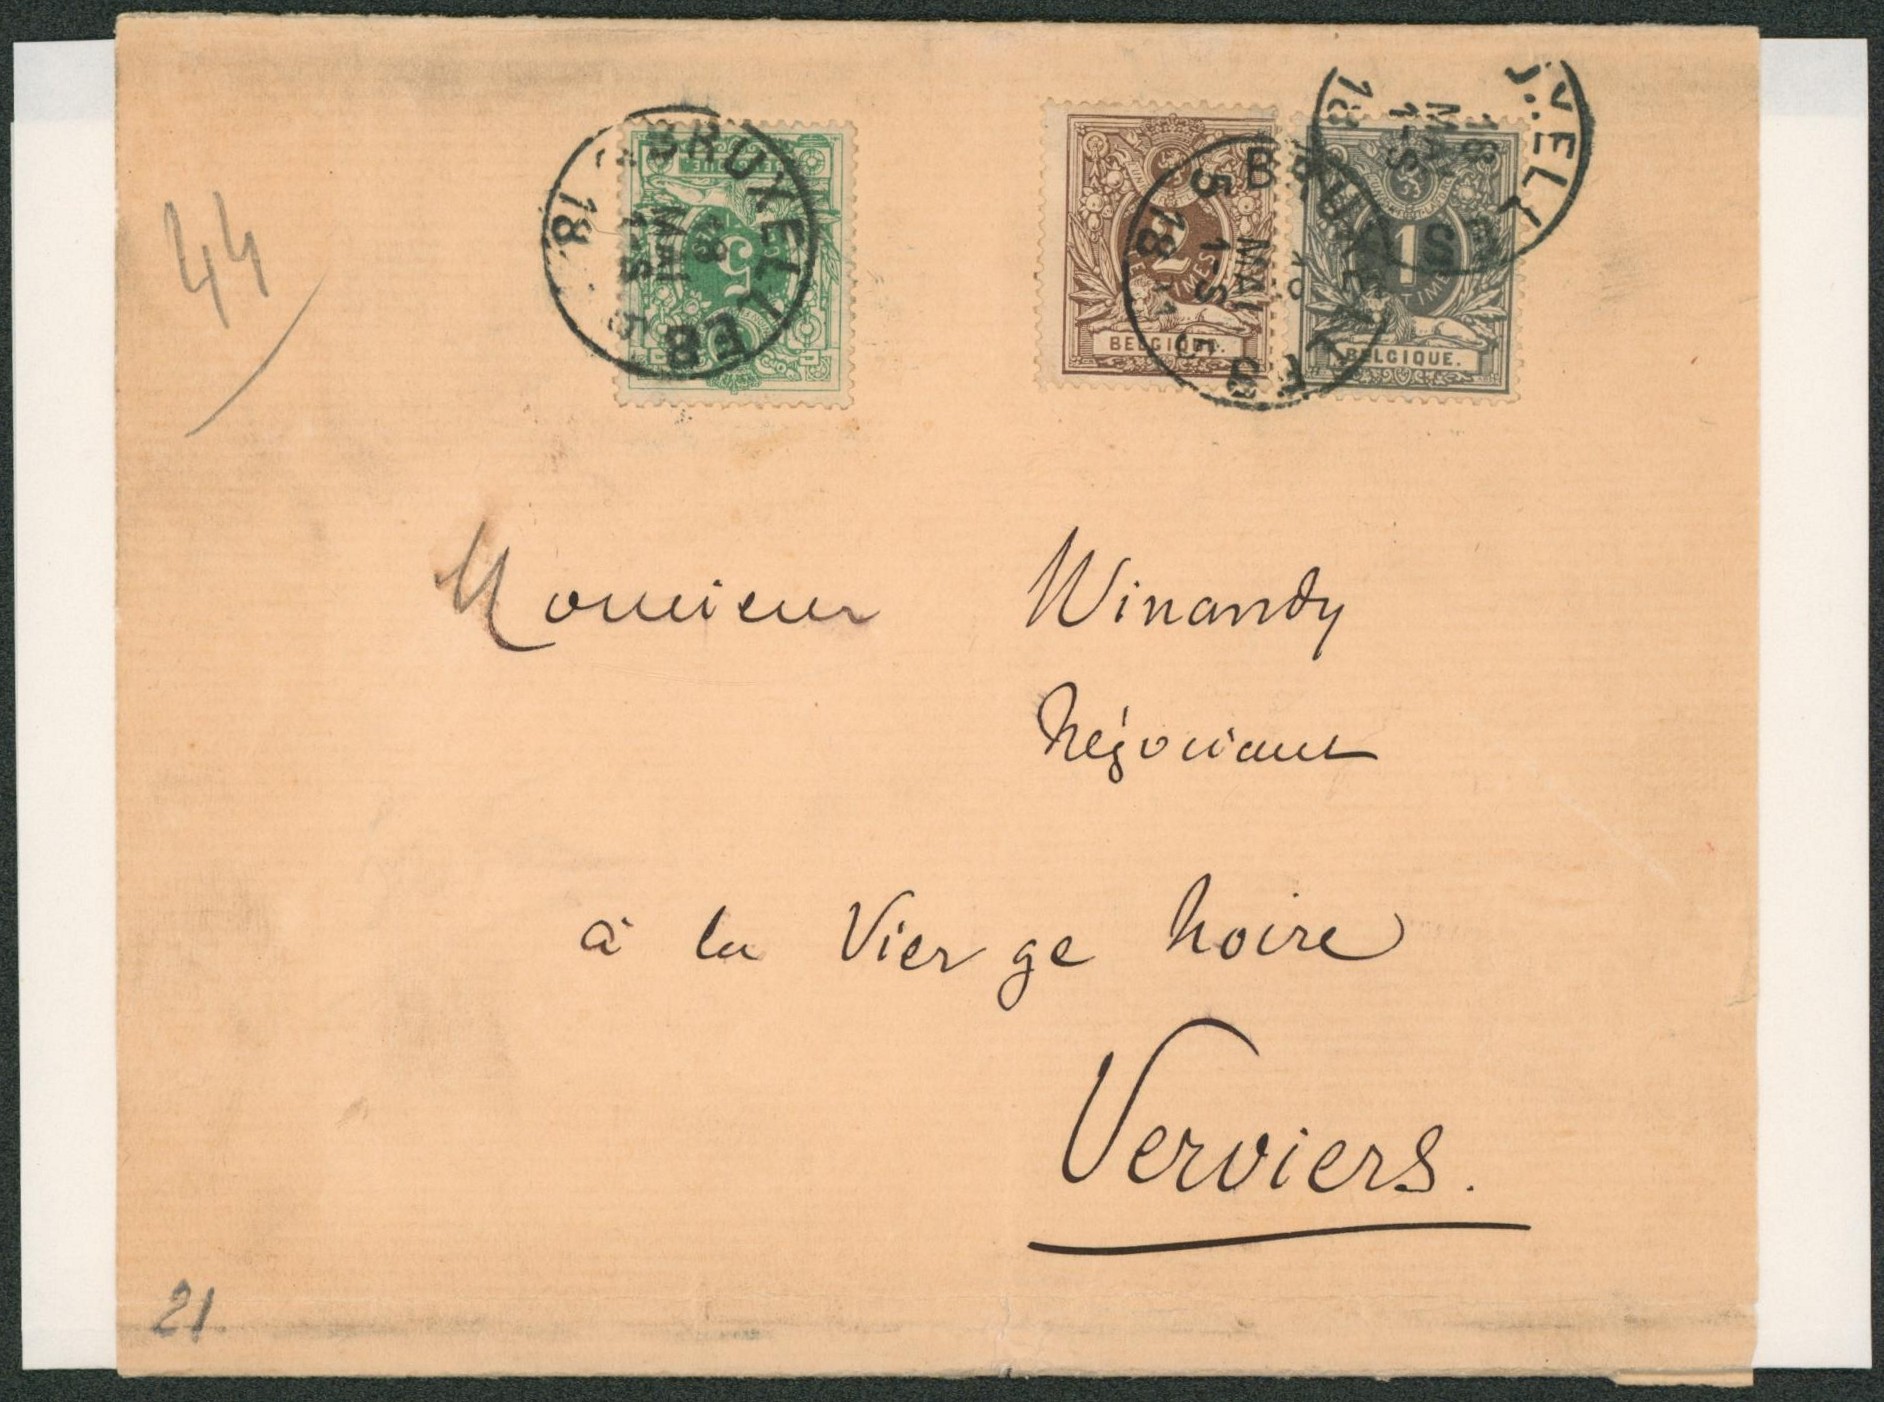 44
BRUXELLES
18 MAI
1-S
18
5
BELGIQUE.
2
CENTIMES
BRUXELLES
5
MAI
1-S
18
BELGIQUE.
1
18
MAI
1-S
18
Monsieur Winandy
Négociant
à la Vierge Noire
Verviers.
21